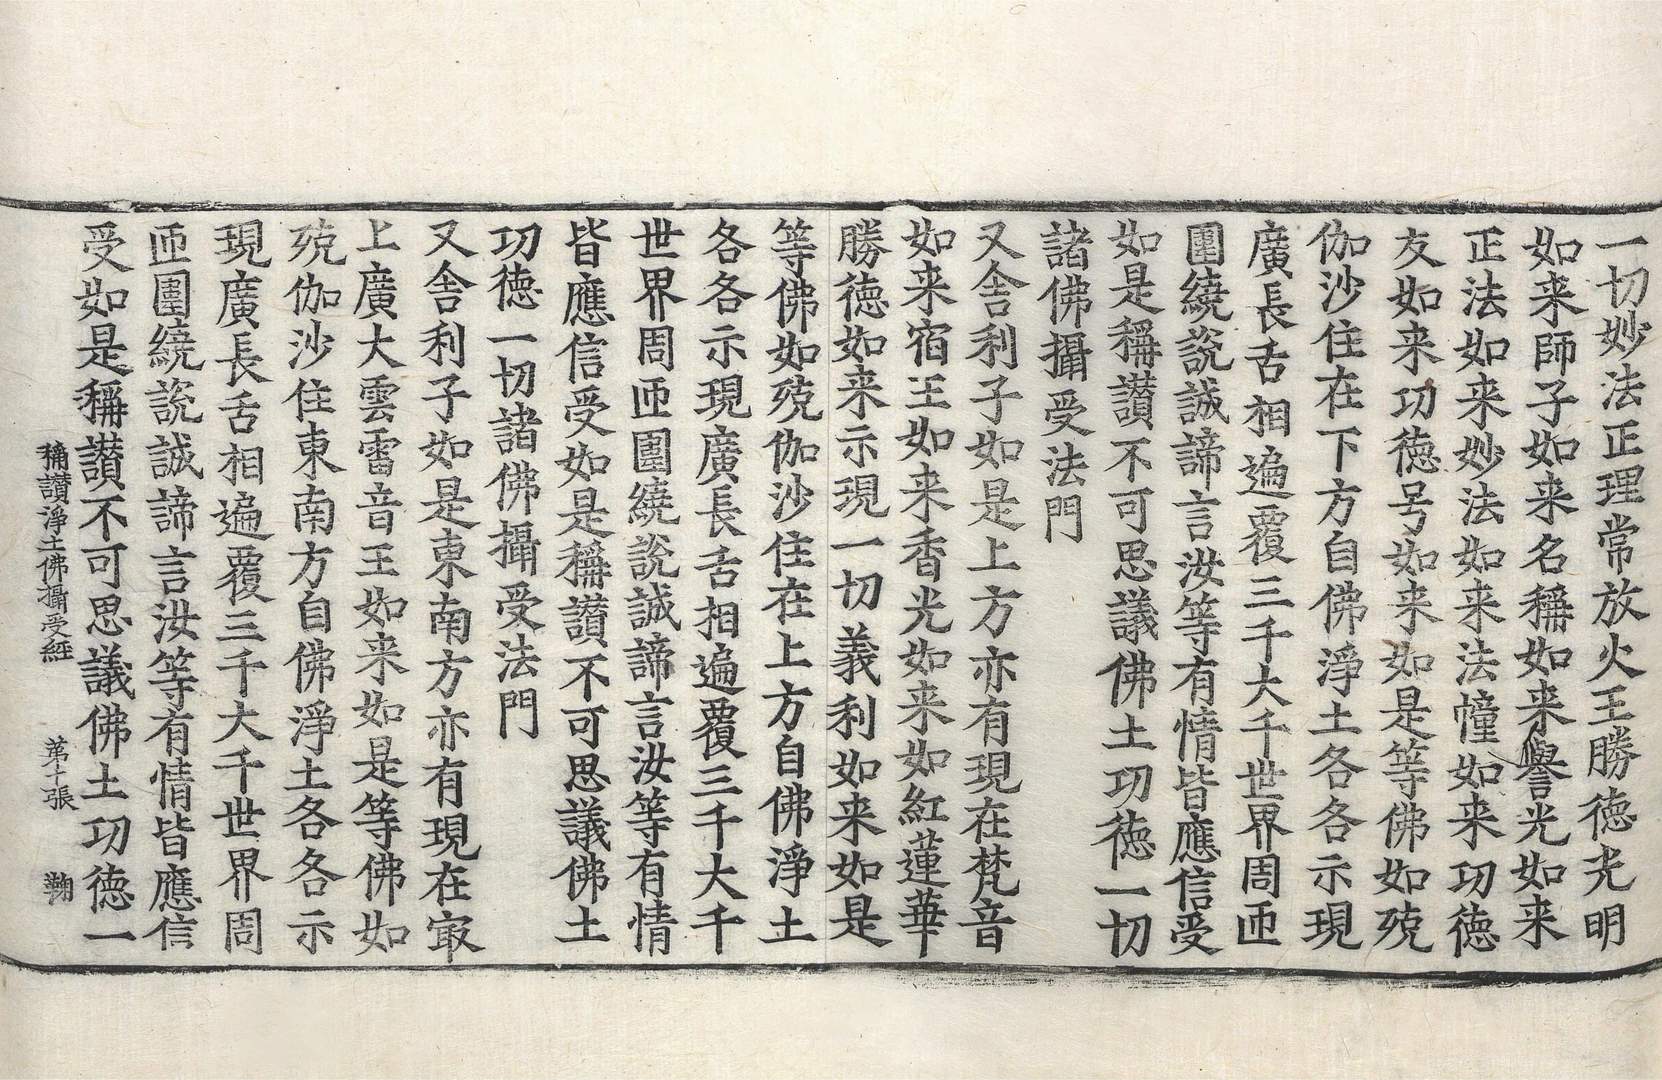 一切妙法正理常放火王勝德光明
如来師子如来名稱如来譽光如来
正法如来妙法如来法幢如来功德
友如来功德号如来如是等佛如殑
伽沙住在下方自佛淨土各各示現
廣長舌相遍覆三千大千世界周匝
圍繞說誠諦言汝等有情皆應信受
如是稱讃不可思議佛土功德一切
諸佛攝受法門
又舍利子如是上方亦有現在梵音
如来宿王如来香光如来如紅蓮華
勝德如来示現一切義利如来如是
等佛如殑伽沙住在上方自佛淨土
各各示現廣長舌相遍覆三千大千
世界周匝圍繞說誠諦言汝等有情
皆應信受如是稱讃不可思議佛土
功德一切諸佛攝受法門
又舍利子如是東南方亦有現在㝡
上廣大雲雷音王如来如是等佛如
殑伽沙住東南方自佛淨土各各示
現廣長舌相遍覆三千大千世界周
匝圍繞說誠諦言汝等有情皆應信
受如是稱讃不可思議佛土功德一
稱讃淨土佛攝受經 苐十張 鞠